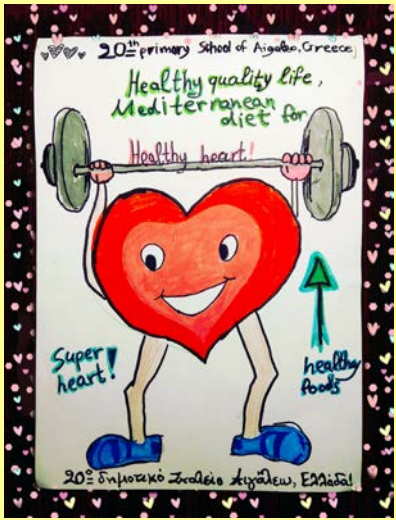 20th primary School of Aigaleo, Greece
Healthy quality life,
Mediterranean
diet for
Healthy heart!
Super
heart!
healthy
foods
20ο δημοτικό Σχολείο Αιγάλεω, Ελλάδα!